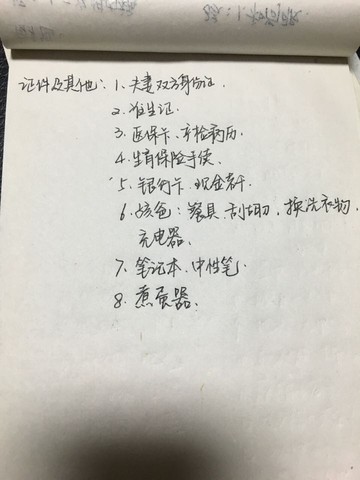 证件及其他：1、夫妻双方身份证.
2、准生证.
3、医保卡、产检病历.
4、生育保险手续.
5、银行卡、现金若干.
6、孩爸：餐具、刮胡刀，换洗衣物，
充电器.
7、笔记本、中性笔.
8、煮蛋器.